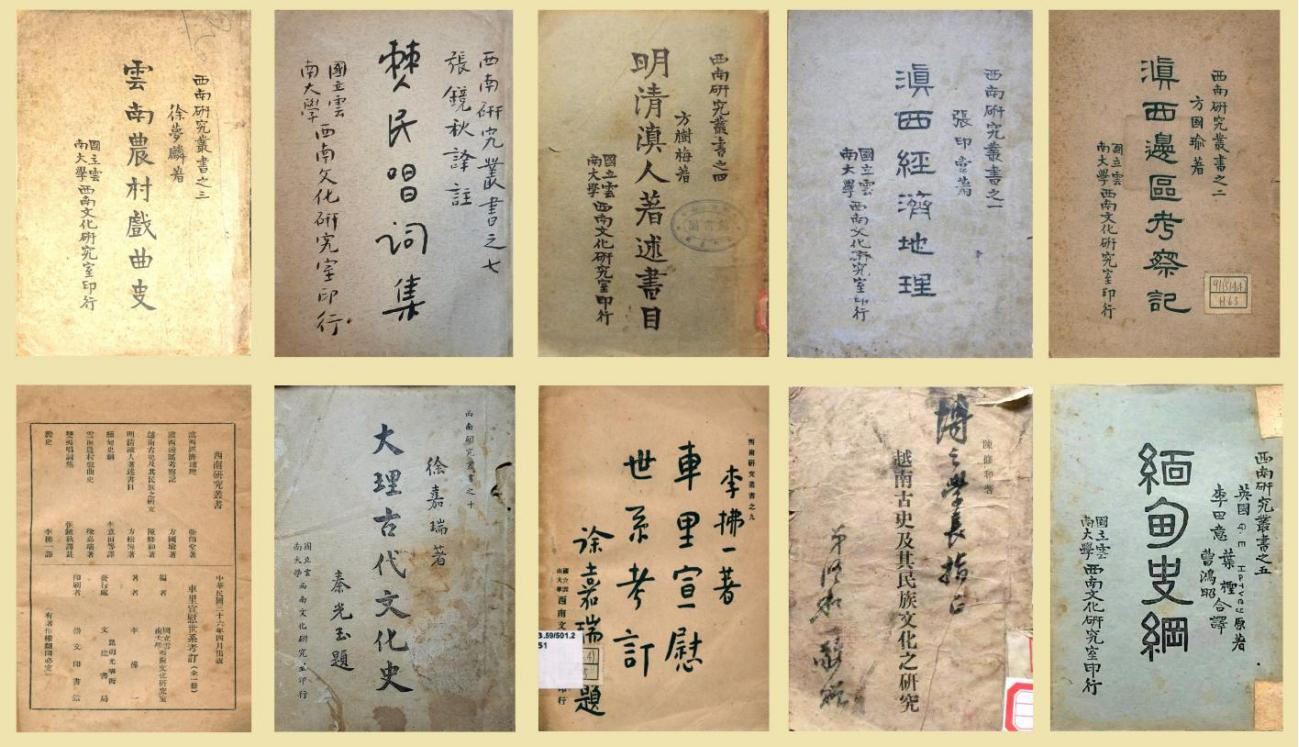 西南研究叢書之三
徐夢麟著
雲南農村戲曲史
國立雲南大學西南文化研究室印行
西南研究叢書之七
張鏡秋譯註
僰民唱詞集
國立雲南大學西南文化研究室印行
西南研究叢書之四
方樹梅著
明清滇人著述書目
國立雲南大學西南文化研究室印行
西南研究叢書之一
張印堂著
滇西經濟地理
國立雲南大學西南文化研究室印行
西南研究叢書之二
方國瑜著
滇西邊區考察記
國立雲南大學西南文化研究室印行
H65
西南研究叢書
滇西經濟地理
滇西邊區考察記 方國瑜著
越南古史及其民族文化之研究 陳修和著
明清滇人著述書目 方樹梅著
緬甸史綱 李田意等譯
雲南農村戲曲史 徐嘉瑞著
僰民唱詞集 張鏡秋譯註
泐史 李拂一譯
中華民國三十六年四月出版
車里宣慰世系考訂(全一冊)
編者 國立雲南大學西南文化研究室
著者 李拂一
發行處 昆明光華街 文建書局
印刷者 崇文印書館
西南研究叢書之十
徐嘉瑞著
大理古代文化史
秦光玉題
國立雲南大學西南文化研究室印行
西南研究叢書之九
李拂一著
車里宣慰
世系考訂
徐嘉瑞題
3.59/501.2
51
陳修和著
越南古史及其民族文化之研究
博之學長指正
西南研究叢書之五
英國 G E Harvey 原著
李田意 葉檉 曹鴻昭 合譯
緬甸史綱
國立雲南大學西南文化研究室印行